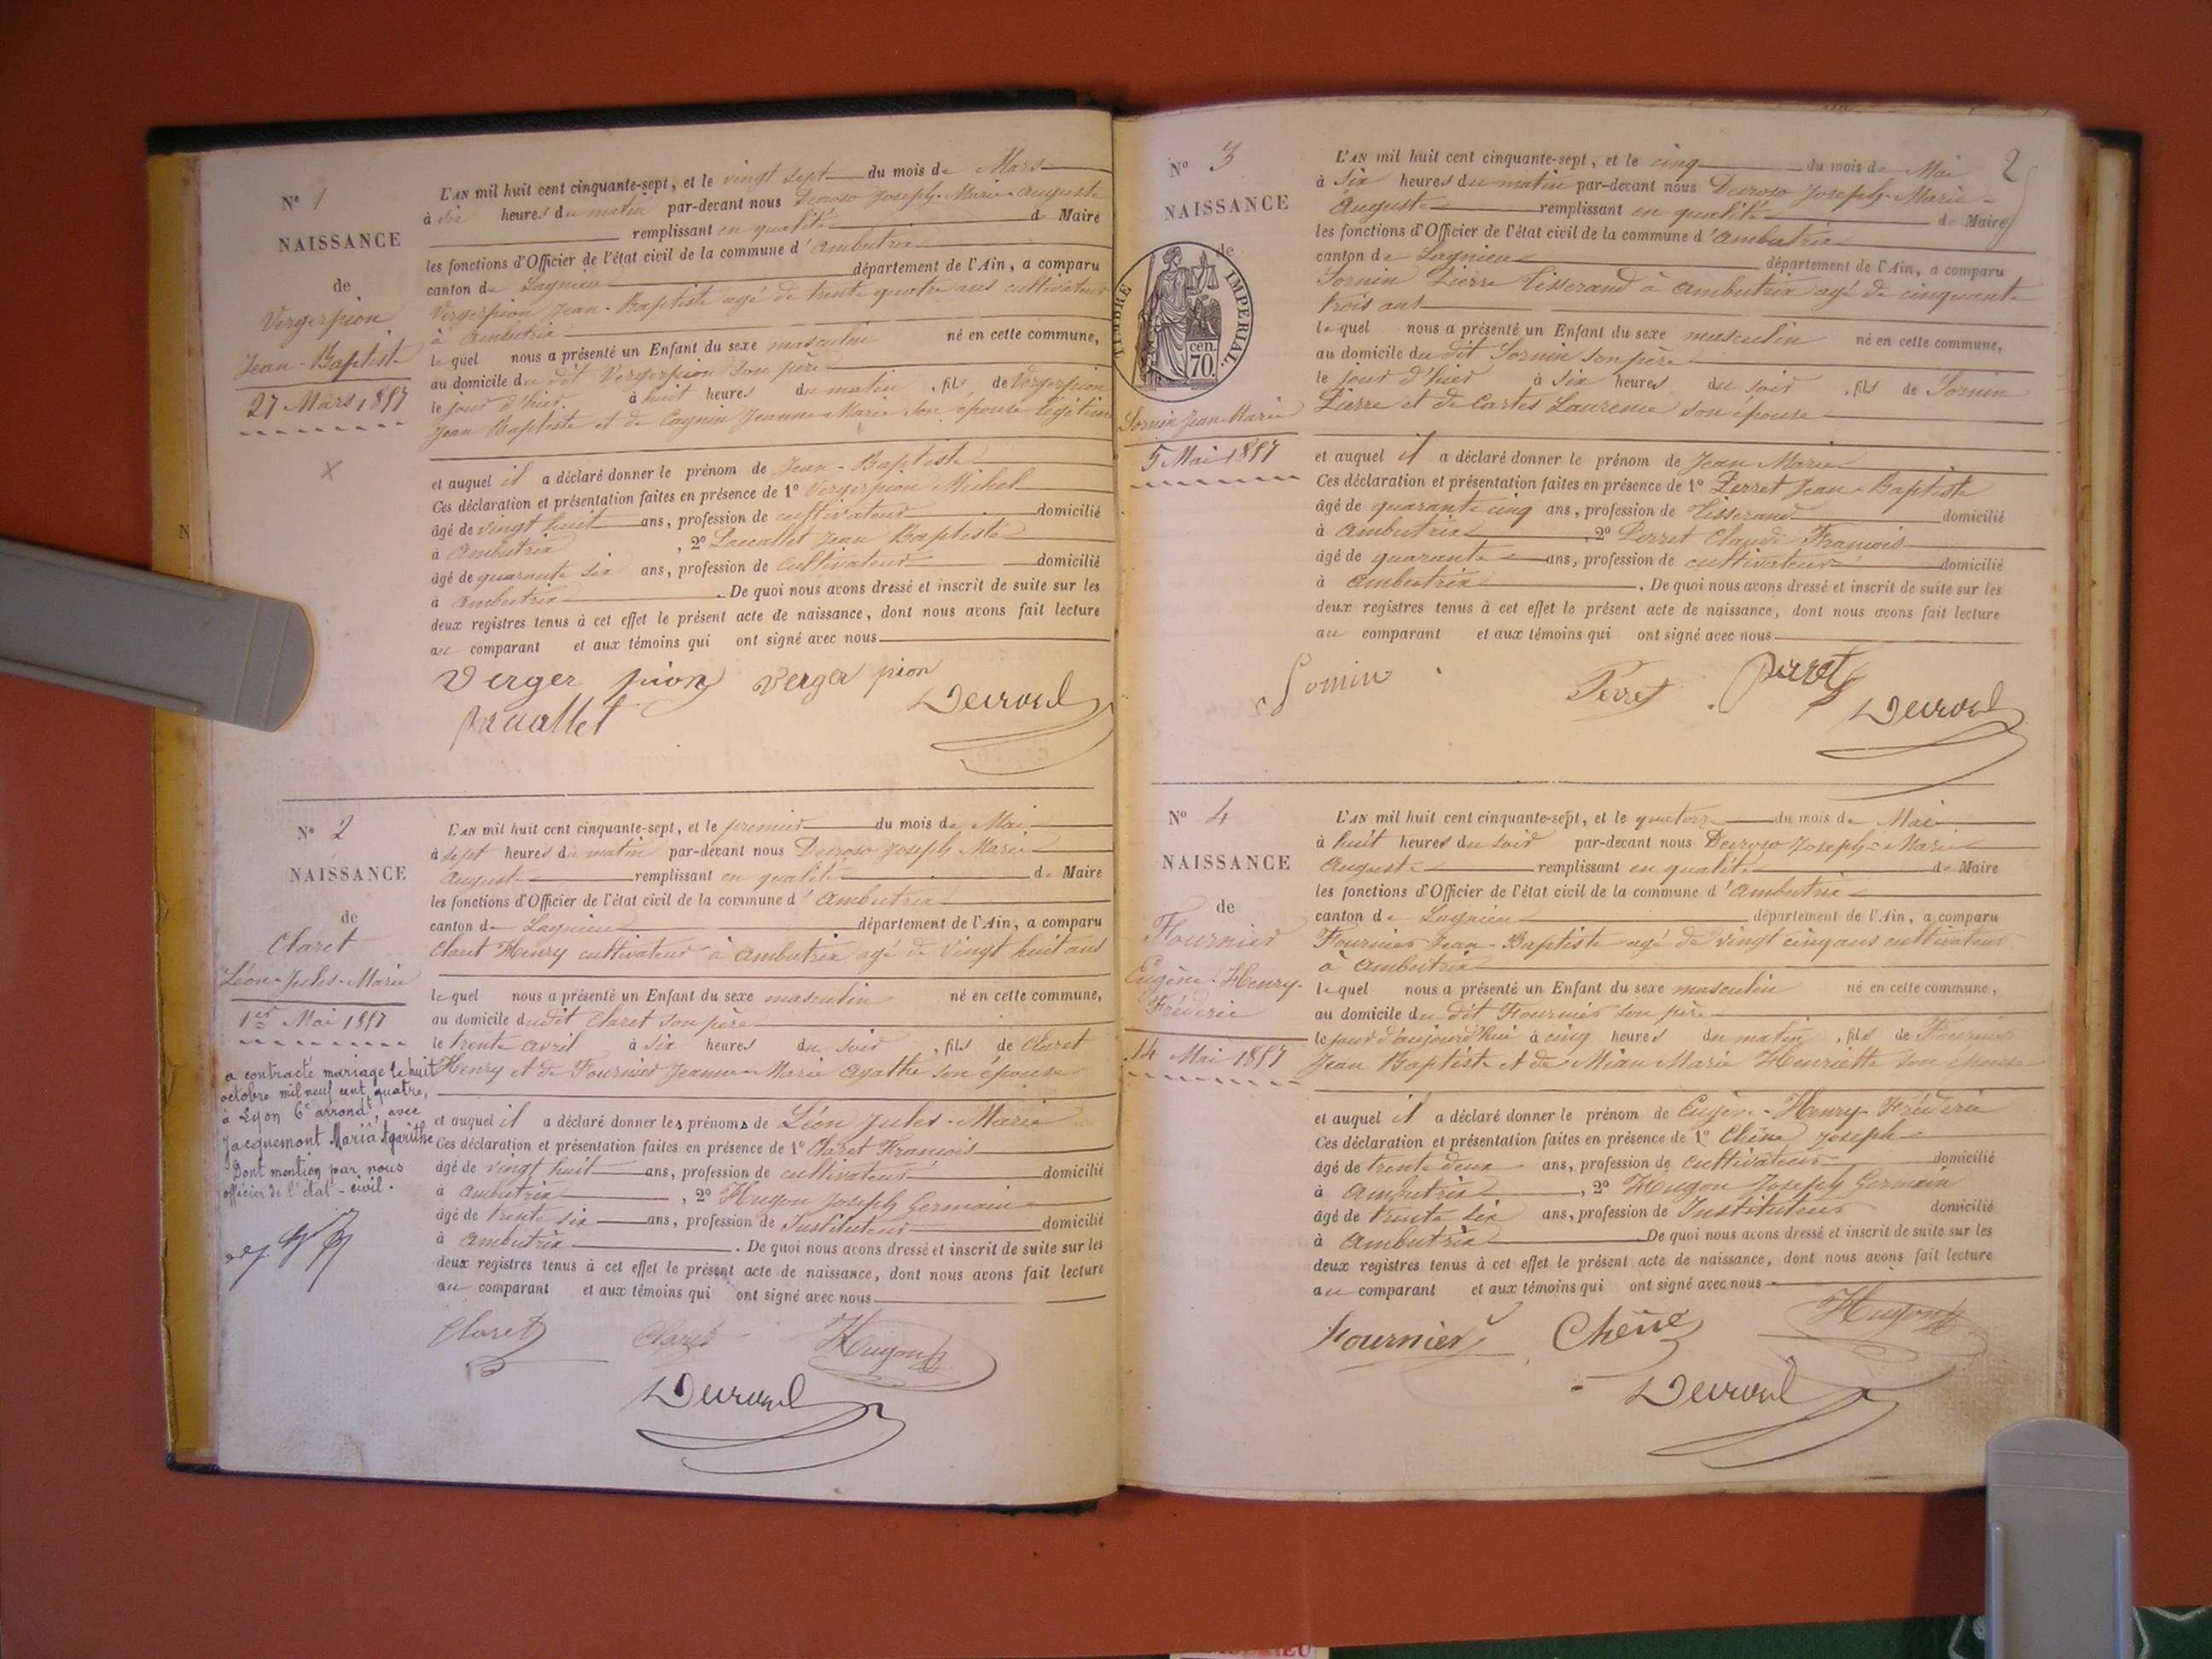 N° 1
NAISSANCE
de
Vergerpion
Jean-Baptiste
27 Mars 1857
L'AN mil huit cent cinquante-sept, et le vingt sept du mois de Mars
à six heures du matin par-devant nous Joseph-Marie-Auguste
remplissant en qualité de Maire
les fonctions d'Officier de l'état civil de la commune d'Ambutrix
canton de Lagnieu département de l'Ain, a comparu
Vergerpion Jean-Baptiste agé de trente quatre ans cultivateur
à Ambutrix
lequel nous a présenté un Enfant du sexe masculin né en cette commune,
au domicile du dit Vergerpion son père
le jour d'hier à huit heures du matin, fils de Vergerpion
Jean Baptiste et de Jeanne-Marie son épouse légitime
et auquel il a déclaré donner le prénom de Jean-Baptiste
Ces déclaration et présentation faites en présence de 1° Vergerpion Michel
âgé de vingt huit ans, profession de cultivateur domicilié
à Ambutrix, 2° Jean Baptiste
âgé de quarante six ans, profession de cultivateur domicilié
à Ambutrix. De quoi nous avons dressé et inscrit de suite sur les
deux registres tenus à cet effet le présent acte de naissance, dont nous avons fait lecture
au comparant et aux témoins qui ont signé avec nous
Verger pion Verger pion
N° 2
NAISSANCE
de
Claret
Léon-Jules-Marie
1er Mai 1857
a contracté mariage le huit
octobre mil neuf cent quatre,
à Lyon 6e arrondt, avec
Jacquemont Maria Agarithe
Dont mention par nous
officier de l'état-civil.
L'AN mil huit cent cinquante-sept, et le premier du mois de Mai
à sept heures du matin par-devant nous Joseph Marie
Auguste remplissant en qualité de Maire
les fonctions d'Officier de l'état civil de la commune d'Ambutrix
canton de Lagnieu département de l'Ain, a comparu
Claret Henry cultivateur à Ambutrix agé de Vingt huit ans
lequel nous a présenté un Enfant du sexe masculin né en cette commune,
au domicile dudit Claret son père
le trente avril à six heures du soir, fils de Claret
Henry et de Fournier Jeanne-Marie Agathe son épouse
et auquel il a déclaré donner les prénoms de Léon Jules-Marie
Ces déclaration et présentation faites en présence de 1° Claret François
âgé de vingt huit ans, profession de cultivateur domicilié
à Ambutrix, 2° Hugon Joseph Germain
âgé de trente six ans, profession de Instituteur domicilié
à Ambutrix. De quoi nous avons dressé et inscrit de suite sur les
deux registres tenus à cet effet le présent acte de naissance, dont nous avons fait lecture
au comparant et aux témoins qui ont signé avec nous
Claret Claret Hugon
2
N° 3
NAISSANCE
de
TIMBRE IMPÉRIAL.
70 cen.
Sornin Jean-Marie
5 Mai 1857
L'AN mil huit cent cinquante-sept, et le cinq du mois de Mai
à six heures du matin par-devant nous Joseph-Marie-
Auguste remplissant en qualité de Maire
les fonctions d'Officier de l'état civil de la commune d'Ambutrix
canton de Lagnieu département de l'Ain, a comparu
Sornin Pierre tisserand à Ambutrix agé de cinquante
trois ans
lequel nous a présenté un Enfant du sexe masculin né en cette commune,
au domicile du dit Sornin son père
le jour d'hier à six heures du soir, fils de Sornin
Pierre et de Cartes Laurence son épouse
et auquel il a déclaré donner le prénom de Jean Marie
Ces déclaration et présentation faites en présence de 1° Perret Jean-Baptiste
âgé de quarante cinq ans, profession de Tisserand domicilié
à Ambutrix, 2° Perret Claude François
âgé de quarante ans, profession de cultivateur domicilié
à Ambutrix. De quoi nous avons dressé et inscrit de suite sur les
deux registres tenus à cet effet le présent acte de naissance, dont nous avons fait lecture
au comparant et aux témoins qui ont signé avec nous
Sornin Perret Perret
N° 4
NAISSANCE
de
Fournier
Eugène-Henry-
Fréderic
14 Mai 1857
L'AN mil huit cent cinquante-sept, et le quatorze du mois de Mai
à huit heures du soir par-devant nous Joseph-Marie
Auguste remplissant en qualité de Maire
les fonctions d'Officier de l'état civil de la commune d'Ambutrix
canton de Lagnieu département de l'Ain, a comparu
Fournier Jean-Baptiste agé de vingt cinq ans cultivateur
à Ambutrix
lequel nous a présenté un Enfant du sexe masculin né en cette commune,
au domicile du dit Fournier son père
le jour d'aujourd'hui à cinq heures du matin, fils de Fournier
Jean Baptiste et de Mian Marie Henriette son épouse
et auquel il a déclaré donner le prénom de Eugène-Henry-Fréderic
Ces déclaration et présentation faites en présence de 1° Chêne Joseph
âgé de trente deux ans, profession de cultivateur domicilié
à Ambutrix, 2° Hugon Joseph Germain
âgé de trente six ans, profession de Instituteur domicilié
à Ambutrix De quoi nous avons dressé et inscrit de suite sur les
deux registres tenus à cet effet le présent acte de naissance, dont nous avons fait lecture
au comparant et aux témoins qui ont signé avec nous
Fournier Chêne Hugon